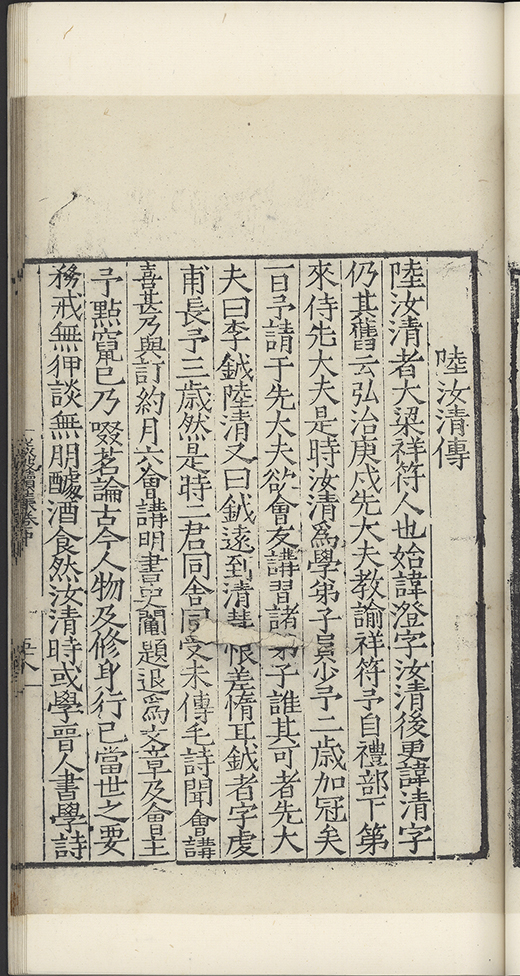 陸汝清傳
陸汝清者大梁祥符人也始諱澄字汝清後更諱清字
仍其舊云弘治庚戌先大夫教諭祥符予自禮部下第
來侍先大夫是時汝清爲學弟子員少予二歲加冠矣
一日予請于先大夫欲會友講習諸弟子誰其可者先大
夫曰李鉞陸清又曰鉞遠到清彗恨差惰耳鉞者字虔
甫長予三歲然是時二君同舍同受未傳毛詩聞會講
喜甚乃與訂約月六會講明書史闡題退爲文章及會主
予點竄已乃啜茗論古今人物及修身行已當世之要
務戒無狎談無朋醵酒食然汝清時或學晉人書學詩